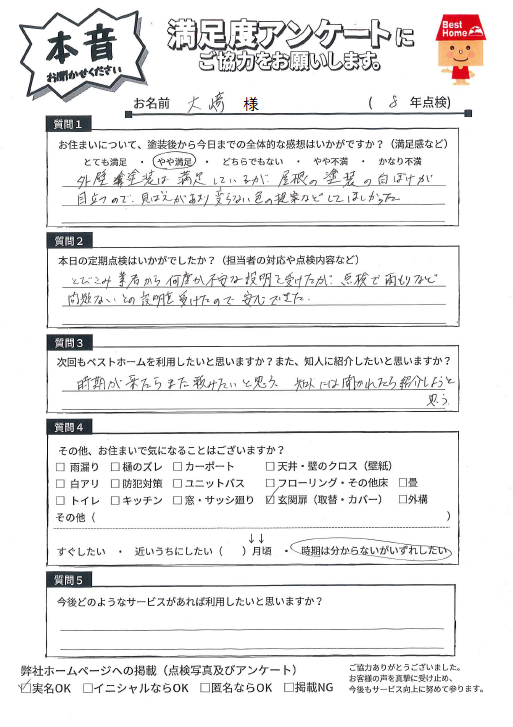 本音
お聞かせください
満足度アンケートに
ご協力をお願いします。
Best Home
お名前 大﨑 様 ( 8 年点検)
質問１
お住まいについて、塗装後から今日までの全体的な感想はいかがですか？（満足感など）
とても満足 ・ やや満足 ・ どちらでもない ・ やや不満 ・ かなり不満
外壁塗装は満足しているが、屋根の塗装の白ぼけが
目立つので、見ばえがあまり変らない色の提案などしてほしかった
質問２
本日の定期点検はいかがでしたか？（担当者の対応や点検内容など）
とびこみ業者から何度か不安な説明を受けたが、点検で雨もりなど
問題ないとの説明を受けたので安心できた。
質問３
次回もベストホームを利用したいと思いますか？また、知人に紹介したいと思いますか？
時期が来たらまた頼みたいと思う。 知人には聞かれたら紹介しようと
思う。
質問４
その他、お住まいで気になることはございますか？
□ 雨漏り □ 樋のズレ □ カーポート □ 天井・壁のクロス（壁紙）
□ 白アリ □ 防犯対策 □ ユニットバス □ フローリング・その他床 □ 畳
□ トイレ □ キッチン □ 窓・サッシ廻り ☑ 玄関扉（取替・カバー） □ 外構
その他（ ）
↓↓
すぐしたい ・ 近いうちにしたい（ ）月頃 ・ 時期は分からないがいずれしたい
質問５
今後どのようなサービスがあれば利用したいと思いますか？
弊社ホームページへの掲載（点検写真及びアンケート）
☑実名OK □イニシャルならOK □匿名ならOK □掲載NG
ご協力ありがとうございました。
お客様の声を真摯に受け止め、
今後もサービス向上に努めて参ります。